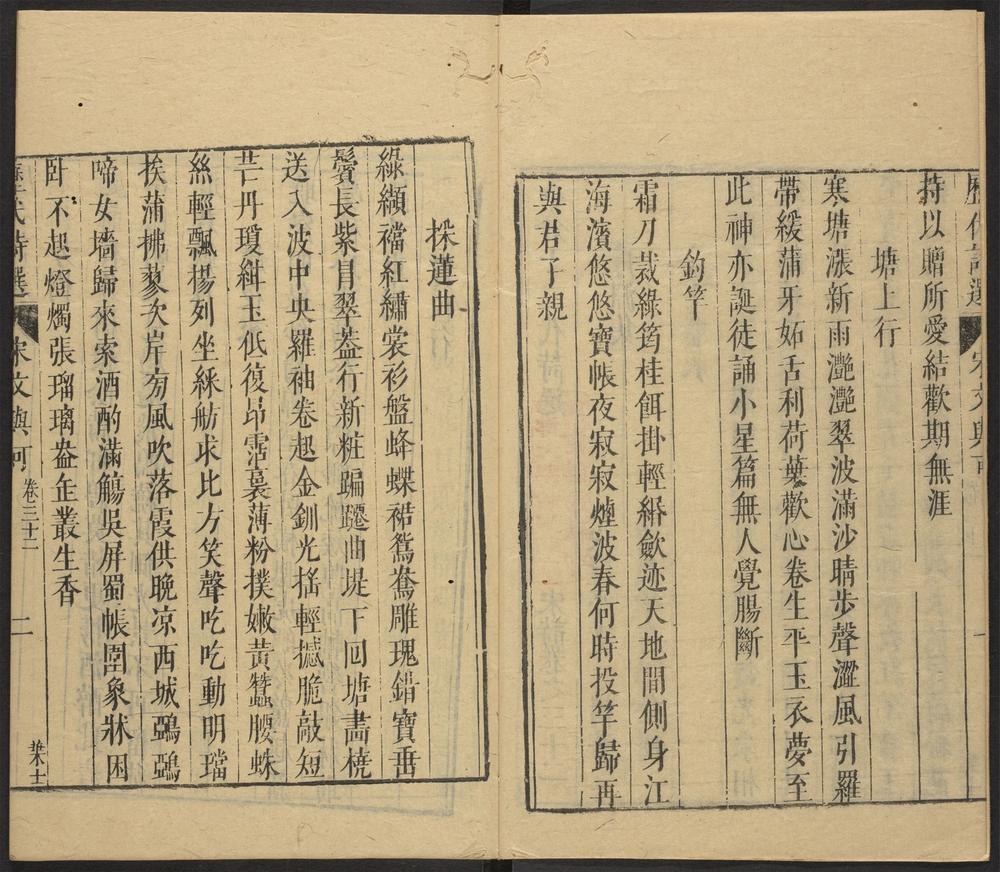 歷代詩選 宋文與可 一
持以贈所愛結歡期無涯
塘上行
寒塘漲新雨灔灔翠波滿沙晴步聲澀風引羅
帶緩蒲牙妬舌利荷葉歡心卷生平玉衣夢至
此神亦誕徒誦小星篇無人覺腸斷
釣竿
霜刀裁綠筠桂餌掛輕緡歛迹天地間側身江
海濱悠悠寶帳夜寂寂煙波春何時投竿歸再
與君子親
採蓮曲
綠纈襠紅繡裳衫盤蜂蝶裙鴛鴦雕瑰錯寶垂
鬢長紫 翠葢行新粧蹁躚曲堤下回塘畵橈
送入波中央羅袖卷起金釧光搖輕撼脆敲短
芒丹瓊緗玉低復昂霑裏薄粉撲嫩黃蠶腰蛛
絲輕飄揚列坐綵舫求比方笑聲吃吃動明璫
挨蒲拂蓼次岸 風吹落霞供晚凉西城鵶鵶
啼女墻歸來索酒酌滿觴吳屏蜀帳圍象牀困
卧不起燈燭張瑠璃盎 叢生香
歷代詩選 宋文與可 卷三十二 二 葉士